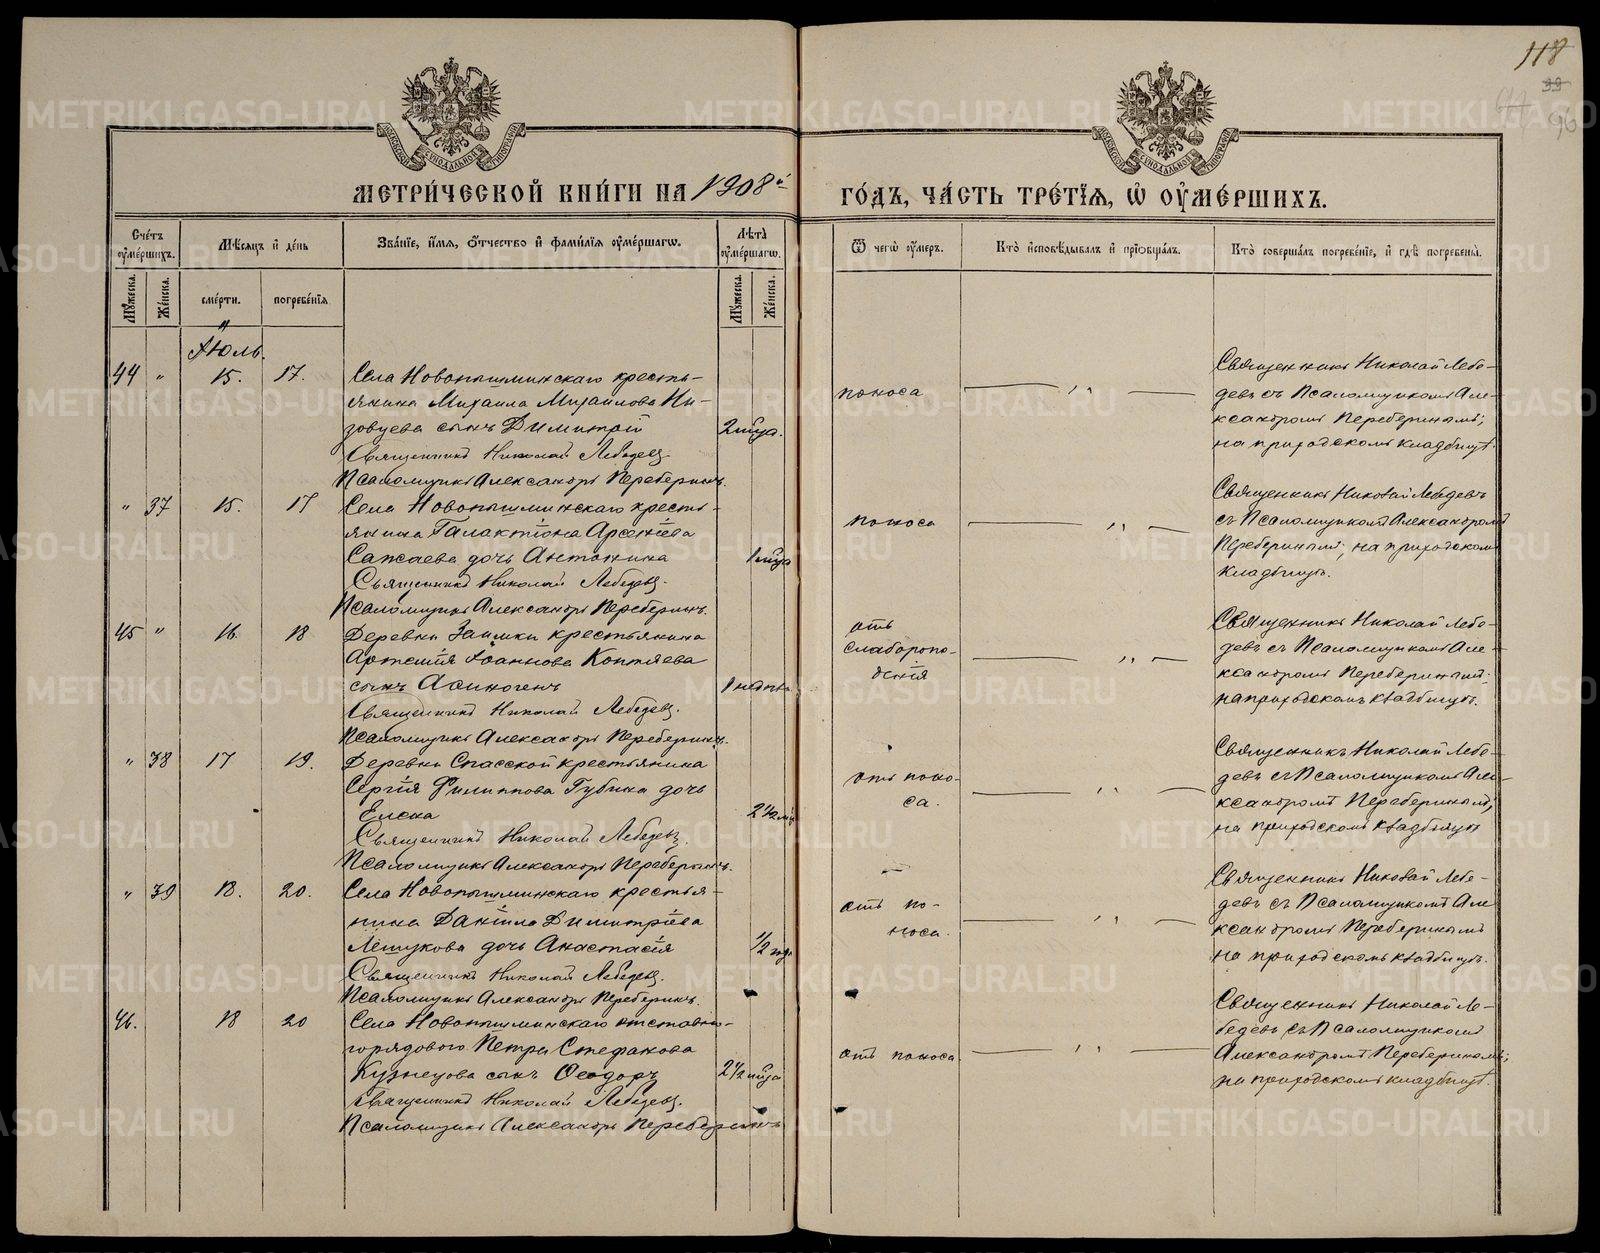 118
33
96
МЕТРИ́ЧЕСКОЙ КНИ́ГИ НА 1908й
ГО́ДЪ, ЧА́СТЬ ТРЕ́ТЇѦ, Ѡ҆ ОУ҆МЕ́РШИХЪ.
МОСКОВСКОЙ СѴНОДАЛЬНОЙ ТИПОГРАФІИ
МОСКОВСКОЙ СѴНОДАЛЬНОЙ ТИПОГРАФІИ
Сче́тъ оу҆ме́ршихъ.
Мѣ́сѧцъ и҆ де́нь
Зва́нїе, и҆́мѧ, ѻ҆́тчество и҆ фами́лїѧ оу҆ме́ршагѡ.
Лѣ́та оу҆ме́ршагѡ.
Ѿ чегѡ̀ оу҆́меръ.
Кто̀ и҆сповѣ́дывалъ и҆ прїѡбща́лъ.
Кто̀ соверша́лъ погребе́нїе, и҆ гдѣ̀ погребены̀.
Мꙋ́жеска.
Же́нска.
сме́рти.
погребе́нїѧ
Мꙋ́жеска.
Же́нска.
Іюль.
44 " 15. 17. Села Новопышминскаго кресть-
янина Михаила Михаилова Ни-
зовцева сынъ Димитрій 2 мѣсяца.
Священникъ Николай Лебедевъ.
Псаломщикъ Александръ Переберинъ.
поноса
— " —
Священникъ Николай Лебе-
девъ съ Псаломщикомъ Але-
ксандромъ Переберинымъ;
на приходскомъ кладбищѣ.
" 37 15. 17 Села Новопышминскаго кресть-
янина Галактіона Арсеніева
Сажаева дочь Антонина 1 мѣсяца
Священникъ Николай Лебедевъ.
Псаломщикъ Александръ Переберинъ.
поноса
— " —
Священникъ Николай Лебедевъ
съ Псаломщикомъ Александромъ
Переберинымъ; на приходскомъ
кладбищѣ.
45 " 16. 18 Деревни Заимки крестьянина
Артемія Іоаннова Коптяева
сынъ Аѳиногенъ 1 недѣли
Священникъ Николай Лебедевъ.
Псаломщикъ Александръ Переберинъ.
отъ
слаборож-
денія
— " —
Священникъ Николай Лебе-
девъ съ Псаломщикомъ Але-
ксандромъ Переберинымъ;
на приходскомъ кладбищѣ.
" 38 17 19. Деревни Спасской крестьянина
Сергія Филиппова Губина дочь
Елена 2 1/2 мѣс
Священникъ Николай Лебедевъ.
Псаломщикъ Александръ Переберинъ.
отъ поно-
са.
— " —
Священникъ Николай Лебе-
девъ съ Псаломщикомъ Але-
ксандромъ Переберинымъ;
на приходскомъ кладбищѣ
" 39 18. 20. Села Новопышминскаго крестья-
нина Даніила Димитріева
Лешукова дочь Анастасія 1/2 года
Священникъ Николай Лебедевъ.
Псаломщикъ Александръ Переберинъ.
отъ по-
носа.
— " —
Священникъ Николай Лебе-
девъ съ Псаломщикомъ Але
ксандромъ Переберинымъ
на приходскомъ кладбищѣ.
46. 18 20 Села Новопышминскаго отставно-
го рядового Петра Стефанова
Кузнецова сынъ Ѳеодоръ 2 1/2 мѣсяца
Священникъ Николай Лебедевъ.
Псаломщикъ Александръ Переберинъ
отъ поноса
— " —
Священникъ Николай Ле-
бедевъ съ Псаломщикомъ
Александромъ Переберинымъ;
на приходскомъ кладбищѣ.
METRIKI.GASO-URAL.RU